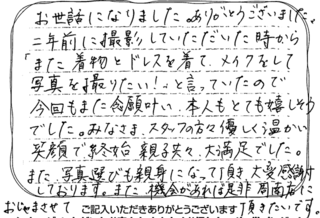 お世話になりました。ありがとうございました。
二年前に撮影していただいた時から
「また着物とドレスを着て、メイクをして
写真を撮りたい!」と言っていたので
今回もまた念願叶い、本人もとても嬉しそう
でした。みなさま、スタッフの方々優しく温かい
笑顔で終始 親子共々、大満足でした。
また、写真選びも親身になって頂き大変感謝
しております。また機会があれば是非 周南店に
おじゃまさせて
ご記入いただきありがとうございます
頂きたいです。